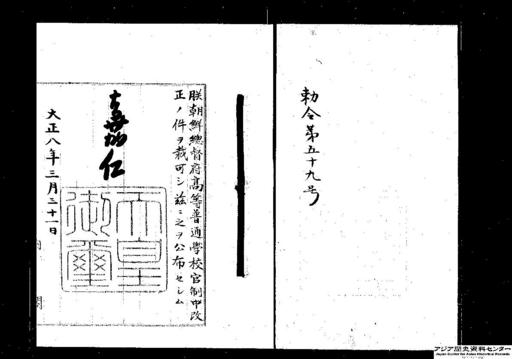 勅令第五十九号
朕朝鮮總督府高等普通學校官制中改
正ノ件ヲ裁可シ茲ニ之ヲ公布セシム
嘉仁
天皇
御璽
大正八年三月三十一日
内閣
アジア歴史資料センター
Japan Center for Asian Historical Records